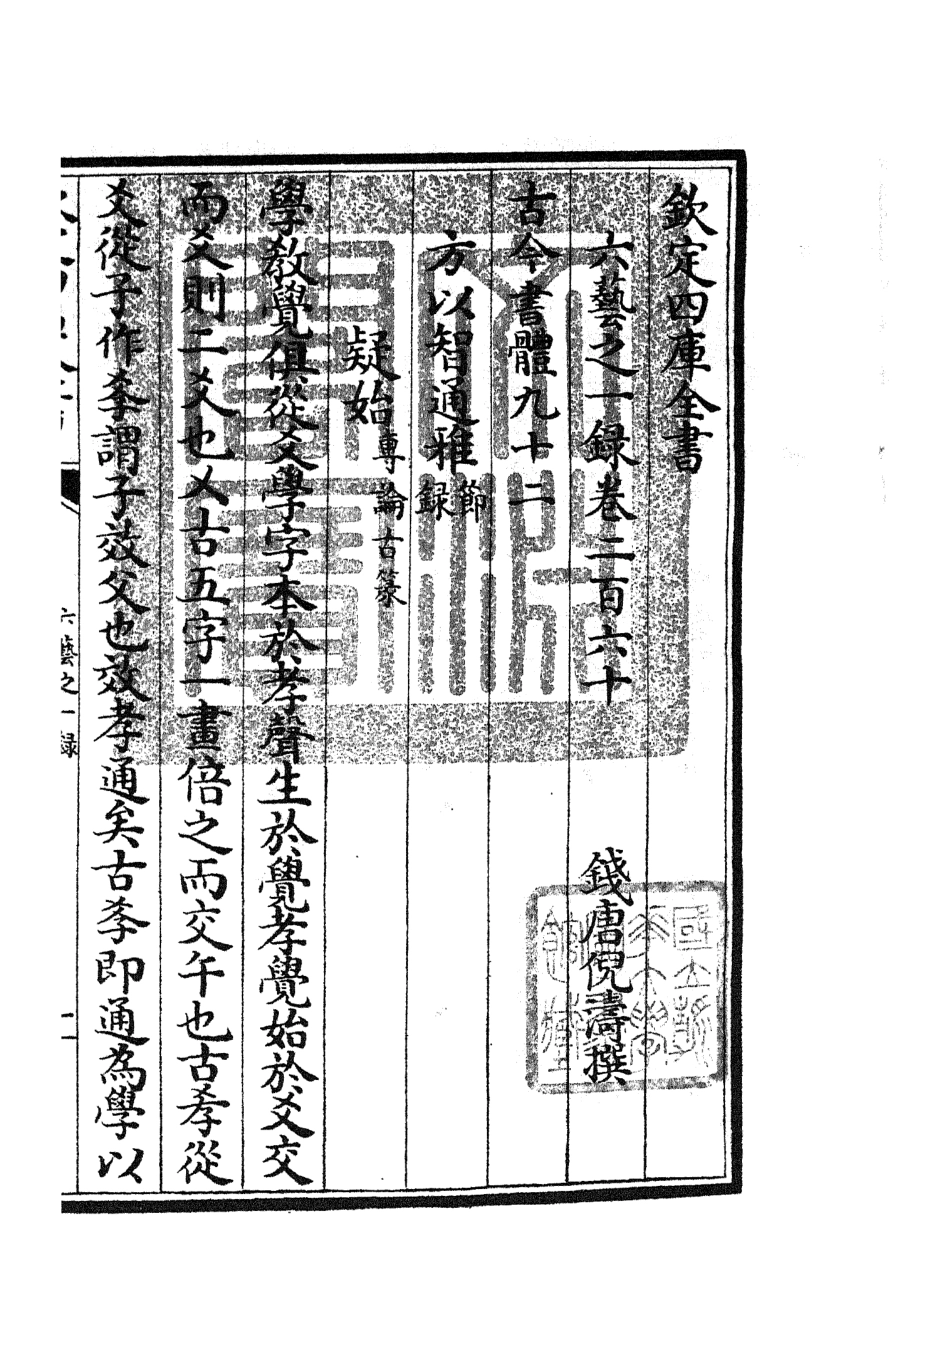 欽定四庫全書
六藝之一録卷二百六十
錢唐倪濤撰
古今書體九十二
方以智通雅節録
疑始專論古篆
學教覺俱從爻學字本於孝聲生於覺孝覺始於爻交
而爻則二㐅也㐅古五字一畫倍之而交午也古孝從
爻從子作孝謂子效父也效孝通矣古孝即通為學以
六藝之一録